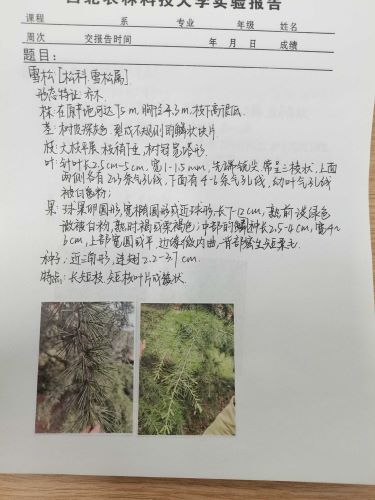 西北农林科技大学实验报告
课程 系 专业 年级 姓名
周次 交报告时间 年 月 日 成绩
题目:
雪松 [松科.雪松属]
形态特征: 乔木.
株: 在原产地可达75m, 胸径4.3m, 枝下高很低.
茎: 树皮深灰色. 裂成不规则的鳞状块片
枝: 大枝平展, 枝梢下垂, 树冠宽塔形.
叶: 针叶长2.5cm-5cm, 宽1-1.5mm, 先端锐尖, 常呈三棱状, 上面
两侧各有2-3条气孔线, 下面有4-6条气孔线, 幼叶气孔线
被白粉;
果: 球果卵圆形, 宽椭圆形或近球形, 长7-12cm, 熟前淡绿色
微被白粉, 熟时褐或栗褐色; 中部的鳞种长2.5-4cm, 宽4~
6cm, 上部宽圆或平, 边缘微内曲, 背部密生短柔毛.
种子: 近三角形, 连翅2.2-3.7cm.
特点: 长短枝, 短枝叶片成簇状.